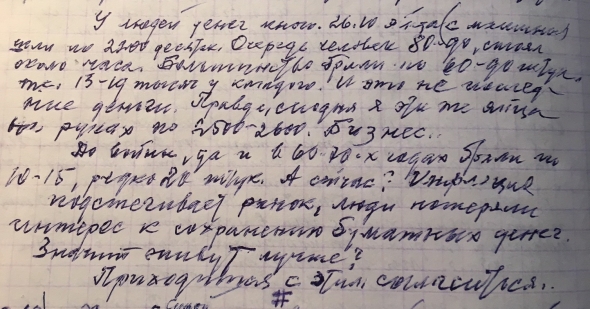 У людей денег много. 26.10 яйца (с машины)
шли по 2200 десяток. Очередь человек 80-90, стоял
около часа. Большинство брали по 60-90 штук,
т.е. 13-19 тысяч у каждого. И это не послед-
ние деньги. Правда, сегодня я эти же яйца
в руках по 2500-2600. Бизнес..
До войны, да и в 60-70-х годах брали по
10-15, редко 20 штук. А сейчас? Инфляция
подстегивает рынок, люди потеряли
интерес к сохранению бумажных денег.
Значит живут лучше?
Приходится с этим согласиться..
#